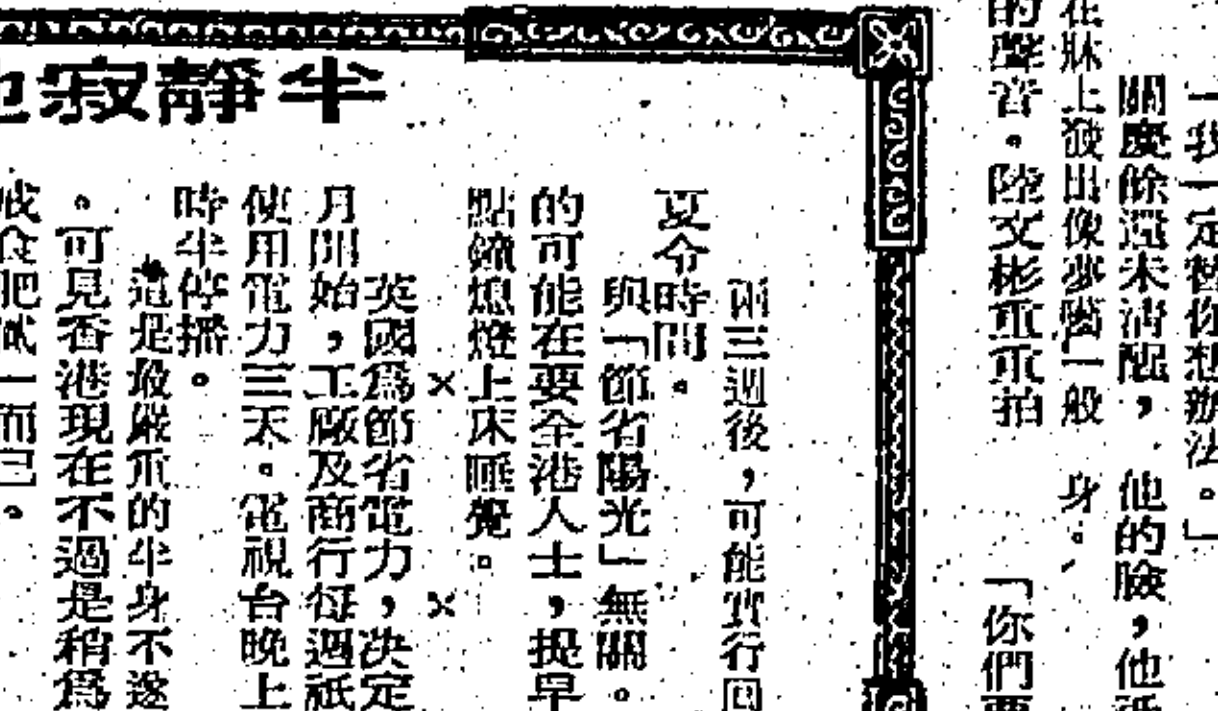 「我一定替你想辦法。」
關慶餘還未清醒，他的臉，他
在牀上發出像夢囈一般　身。
的聲音。陸文彬重重拍　「你們要
半靜寂
兩三週後，可能實行回
夏令時間。
與「節省陽光」無關。
的可能在要全港人士，提早
點鐘熄燈上床睡覺。
×　×
英國爲節省電力，决定
月開始，工廠及商行每週祇
使用電力三天。電視台晚上
時半停播。
這是最嚴重的半身不遂
。可見香港現在不過是稍爲
戒食肥膩一而已。